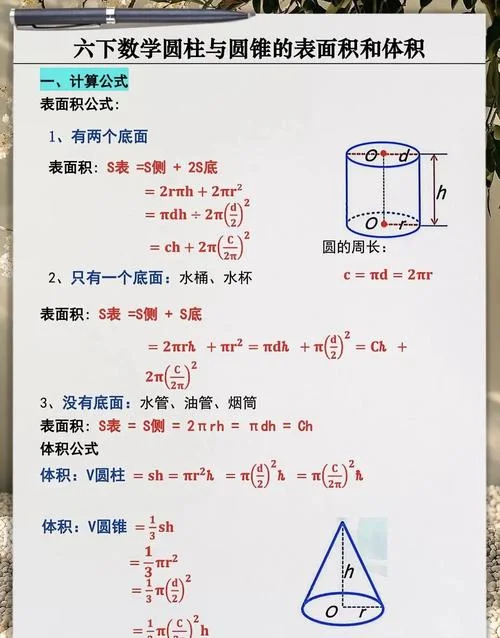 六下数学圆柱与圆锥的表面积和体积
一、计算公式
表面积公式:
1、有两个底面
表面积: S表 =S侧 + 2S底
= 2rπh + 2πr²
= πdh ÷ 2π(d/2)²
= ch + 2π(C/2π)²
O d
h
O r
圆的周长:
c = πd = 2πr
2、只有一个底面: 水桶、水杯
表面积: S表 =S侧 + S底
= 2πrh + πr² = πdh + π(d/2)² = Ch +
2π(C/2π)²
3、没有底面: 水管、油管、烟筒
表面积: S表 = S侧 = 2πrh = πdh = Ch
体积公式
体积: V圆柱 = sh = πr²h = π(d/2)²h = π(C/2π)²h
体积: V圆锥 = 1/3 sh
= 1/3 πr²
= 1/3 π(d/2)²
= 1/3 π(C/2π)²h
h
O r